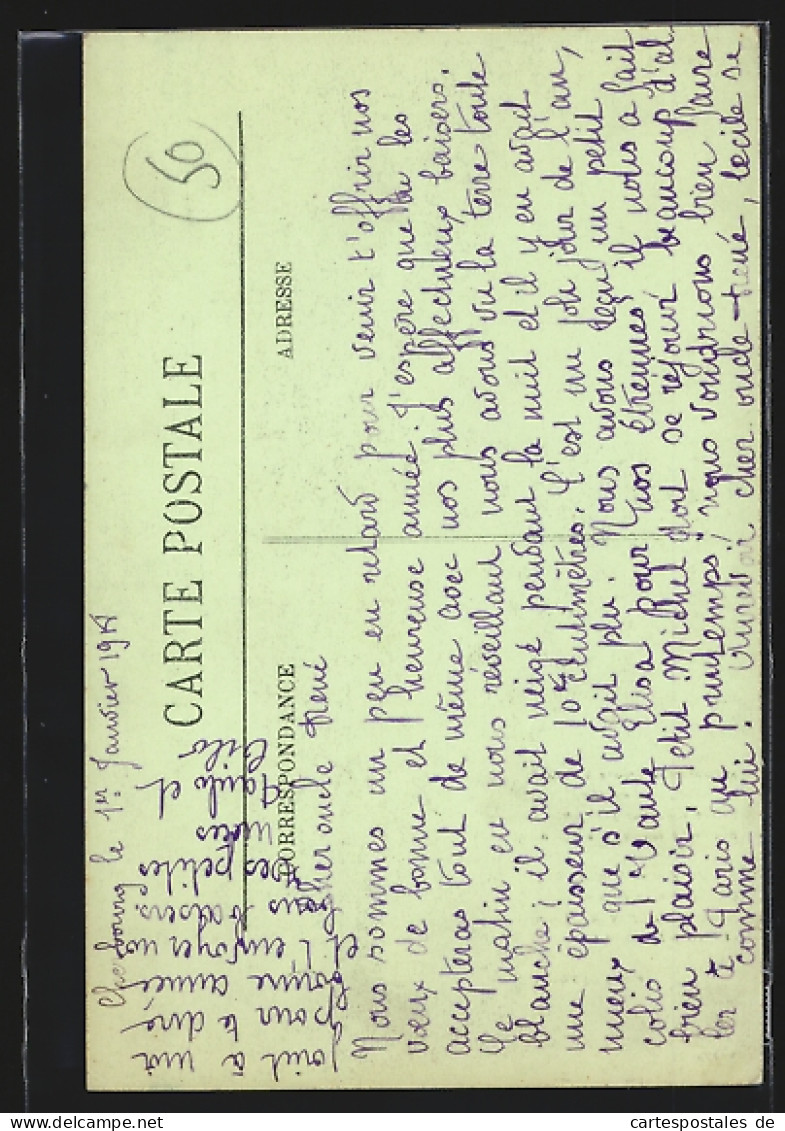 Cherbourg le 1er Janvier 191
CARTE POSTALE
CORRESPONDANCE
ADRESSE
50
Cher oncle René
Nous sommes un peu en retard pour venir t'offrir nos
vœux de bonne et heureuse année. J'espère que tu les
accepteras tout de même avec nos plus affectueux baisers.
Ce matin en nous réveillant nous avons vu la terre toute
blanche; il avait neigé pendant la nuit et il y en avait
une épaisseur de 10 centimètres. C'est un joli jour de l'an,
mieux que s'il avait plu. Nous avons reçu un petit
colis de Tante Elisa pour nos étrennes, il nous a fait
bien plaisir. Petit Michel doit se réjouir beaucoup d'al
ler à Paris au printemps; nous voudrions bien faire
comme lui. Aurevoir cher oncle René, Cécile se
joint à moi
pour te dire
bonne année
et t'envoyer nos
bons baisers.
Tes petites
nièces
Paule et
Cécile
cartespostales de